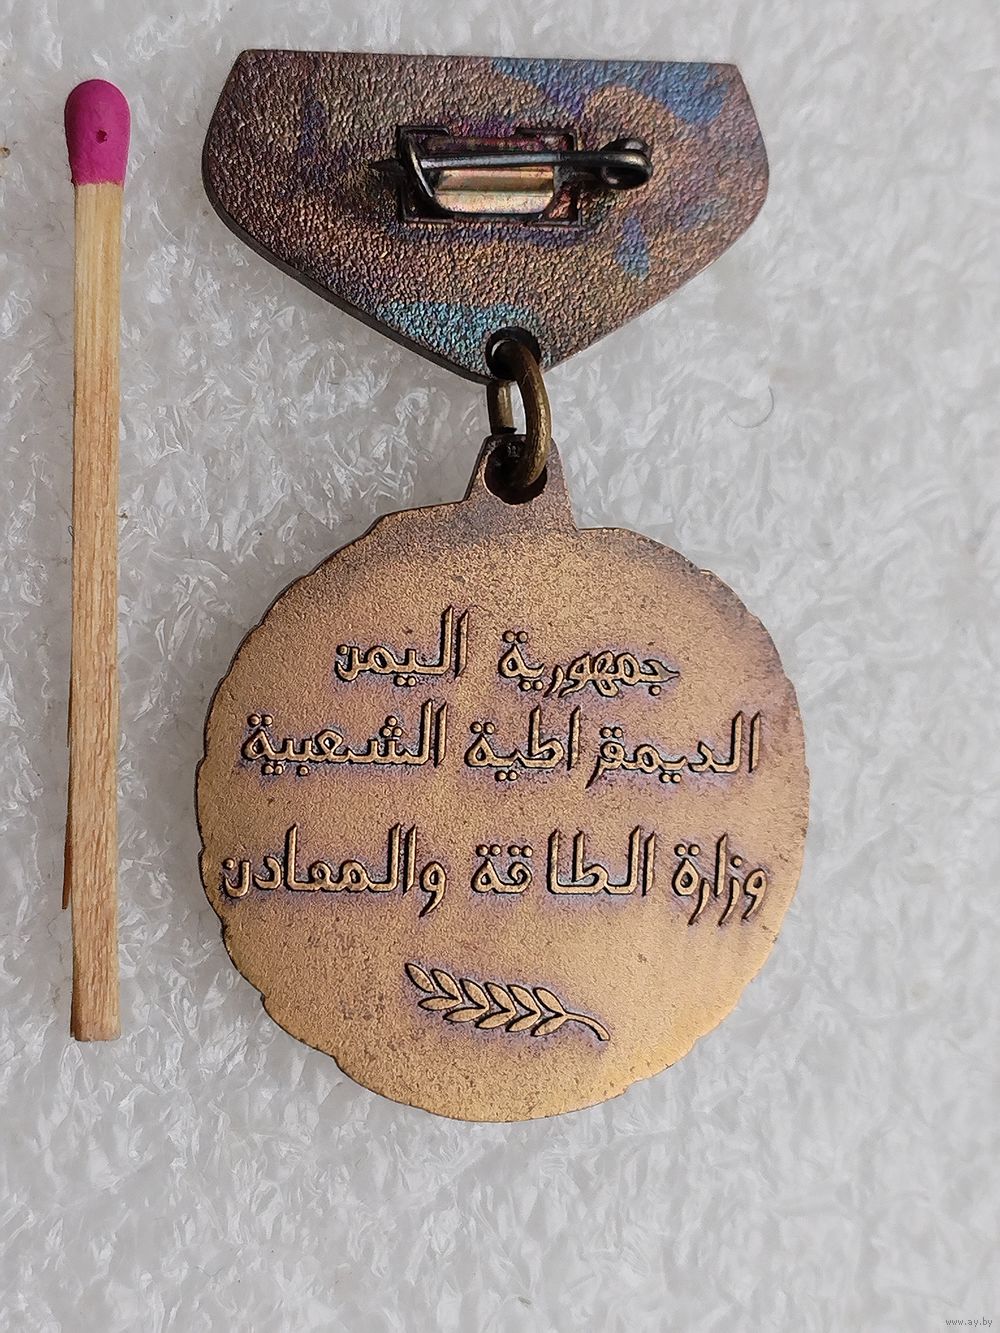 جمهورية اليمن
الديمقراطية الشعبية
وزارة الطاقة والمعادن
www.ay.by